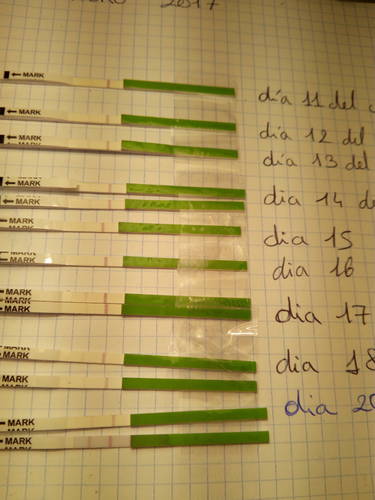 2017
MARK
día 11 del
MARK
día 12 del
MARK
MARK
día 13 del
MARK
MARK
MARK
día 14 de
MARK
MARK
dia 15
MARK
MARK
dia 16
MARK
MARK
MARK
dia 17
MARK
dia 18
MARK
dia 20
MARK
MARK